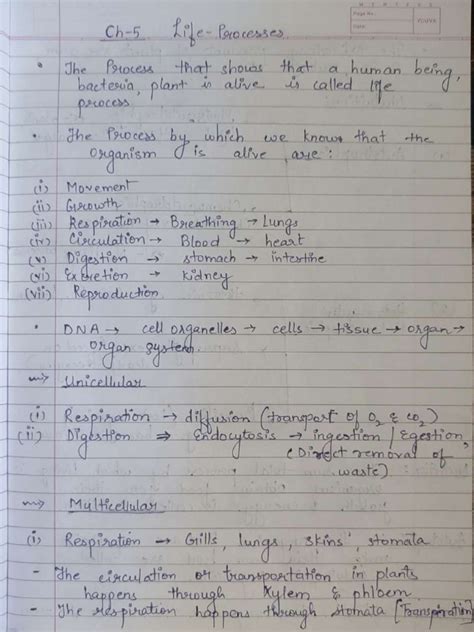 Page No.
Date
YOUVA
Ch-5 Life-Processes
• The Process that shows that a human being,
bacteria, plant is alive is called life
process.
• The Process by which we know that the
Organism is alive are:
(i) Movement
(ii) Growth
(iii) Respiration → Breathing → Lungs
(iv) Circulation → Blood → heart
(v) Digestion → stomach → intestine
(vi) Excretion → kidney
(vii) Reproduction
• DNA → cell organelles → cells → tissue → organ →
organ system.
⇝ Unicellular
(i) Respiration → diffusion (transport of O2 & CO2)
(ii) Digestion ⇒ Endocytosis → ingestion / Egestion
(Direct removal of
waste)
⇝ Multicellular
(i) Respiration → Gills, lungs, skins, stomata
- The circulation or transportation in plants
happens through Xylem & phloem.
- The respiration happens through stomata [Transpiration]